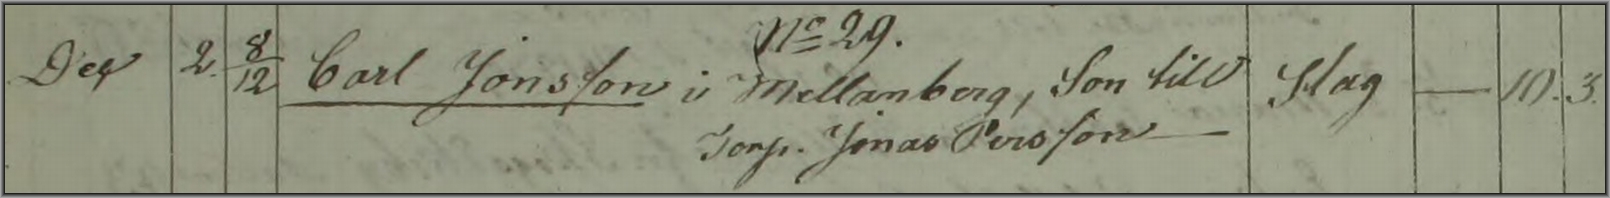 No 29.
Dec 2. 8/12 Carl Jönsson i Mellanberg, Son till Slag — 10. 3.
Torp. Jonas Persson